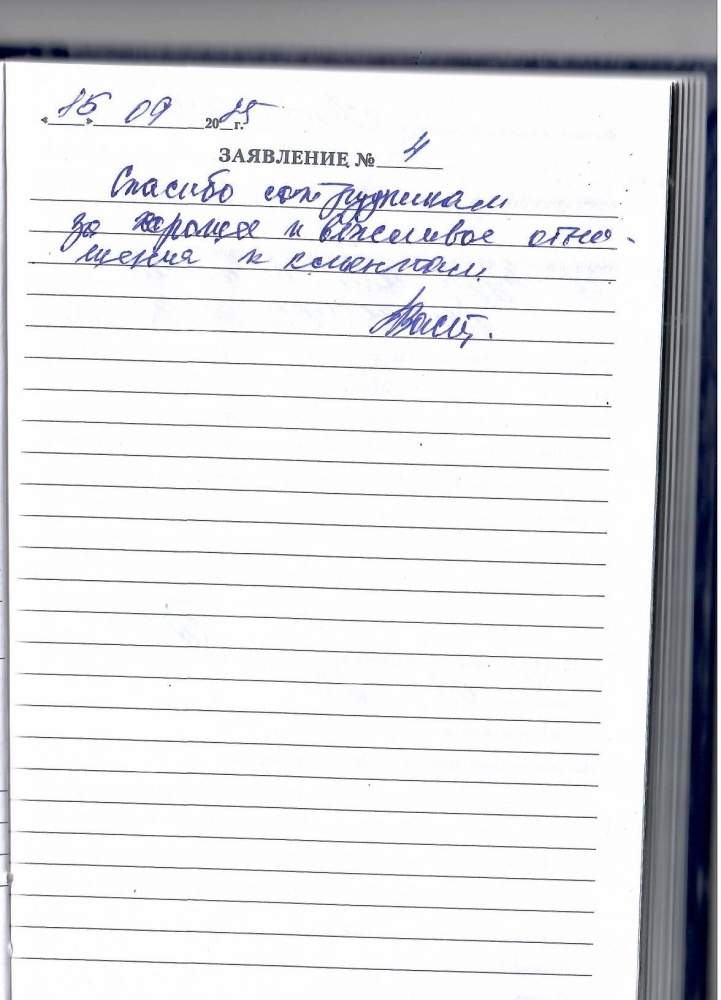 «15» 09 2015 г.
ЗАЯВЛЕНИЕ № 4
Спасибо сотрудникам
за хорошее и вежливое отно-
шения к клиентам.